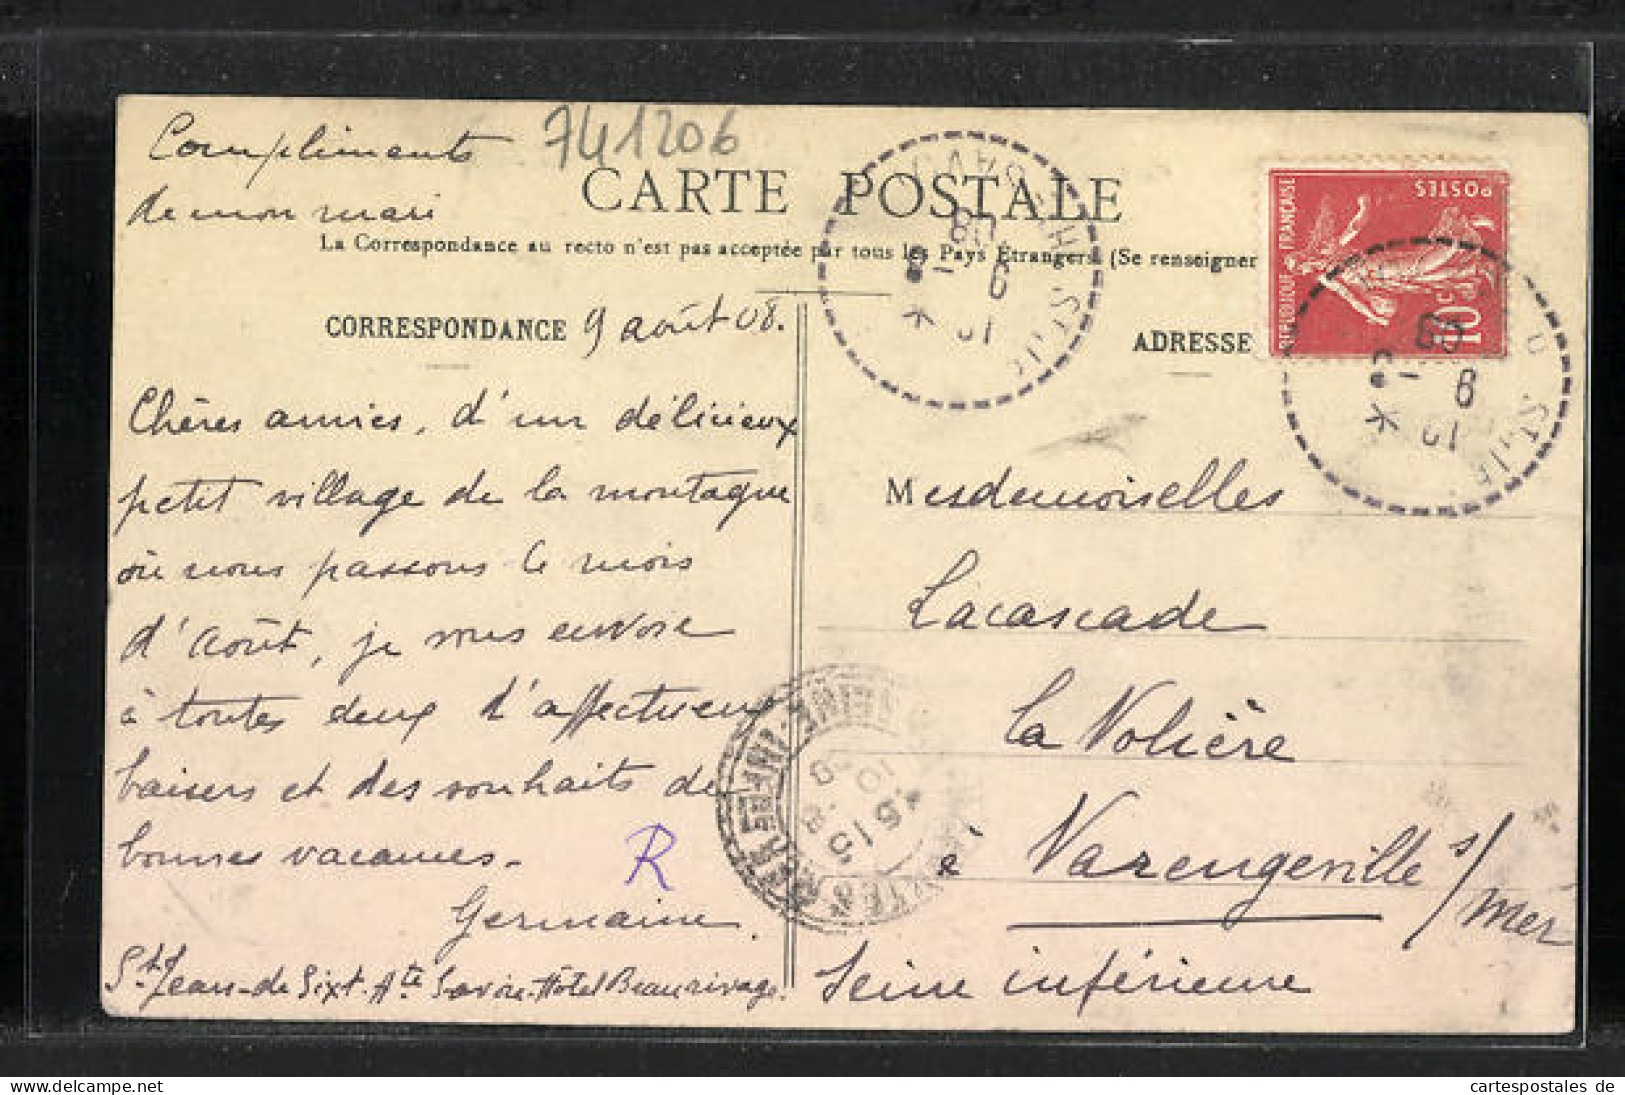 Compliments
de mon mari
741206
CARTE POSTALE
La Correspondance au recto n'est pas acceptée par tous les Pays Étrangers (Se renseigner
CORRESPONDANCE 9 août 08.
Chères amies, d'un délicieux
petit village de la montagne
où nous passons le mois
d'août, je vous envoie
à toutes deux d'affectueux
baisers et des souhaits de
bonnes vacances.
Germaine.
St Jean-de Sixt. Hte Savoie. Hôtel Beaurivage.
R
ADRESSE
REPUBLIQUE FRANÇAISE
POSTES
10c
Mesdemoiselles
Lacascade
La Volière
à Varengeville s/
Mer
Seine inférieure
akpool.de
cartespostales de